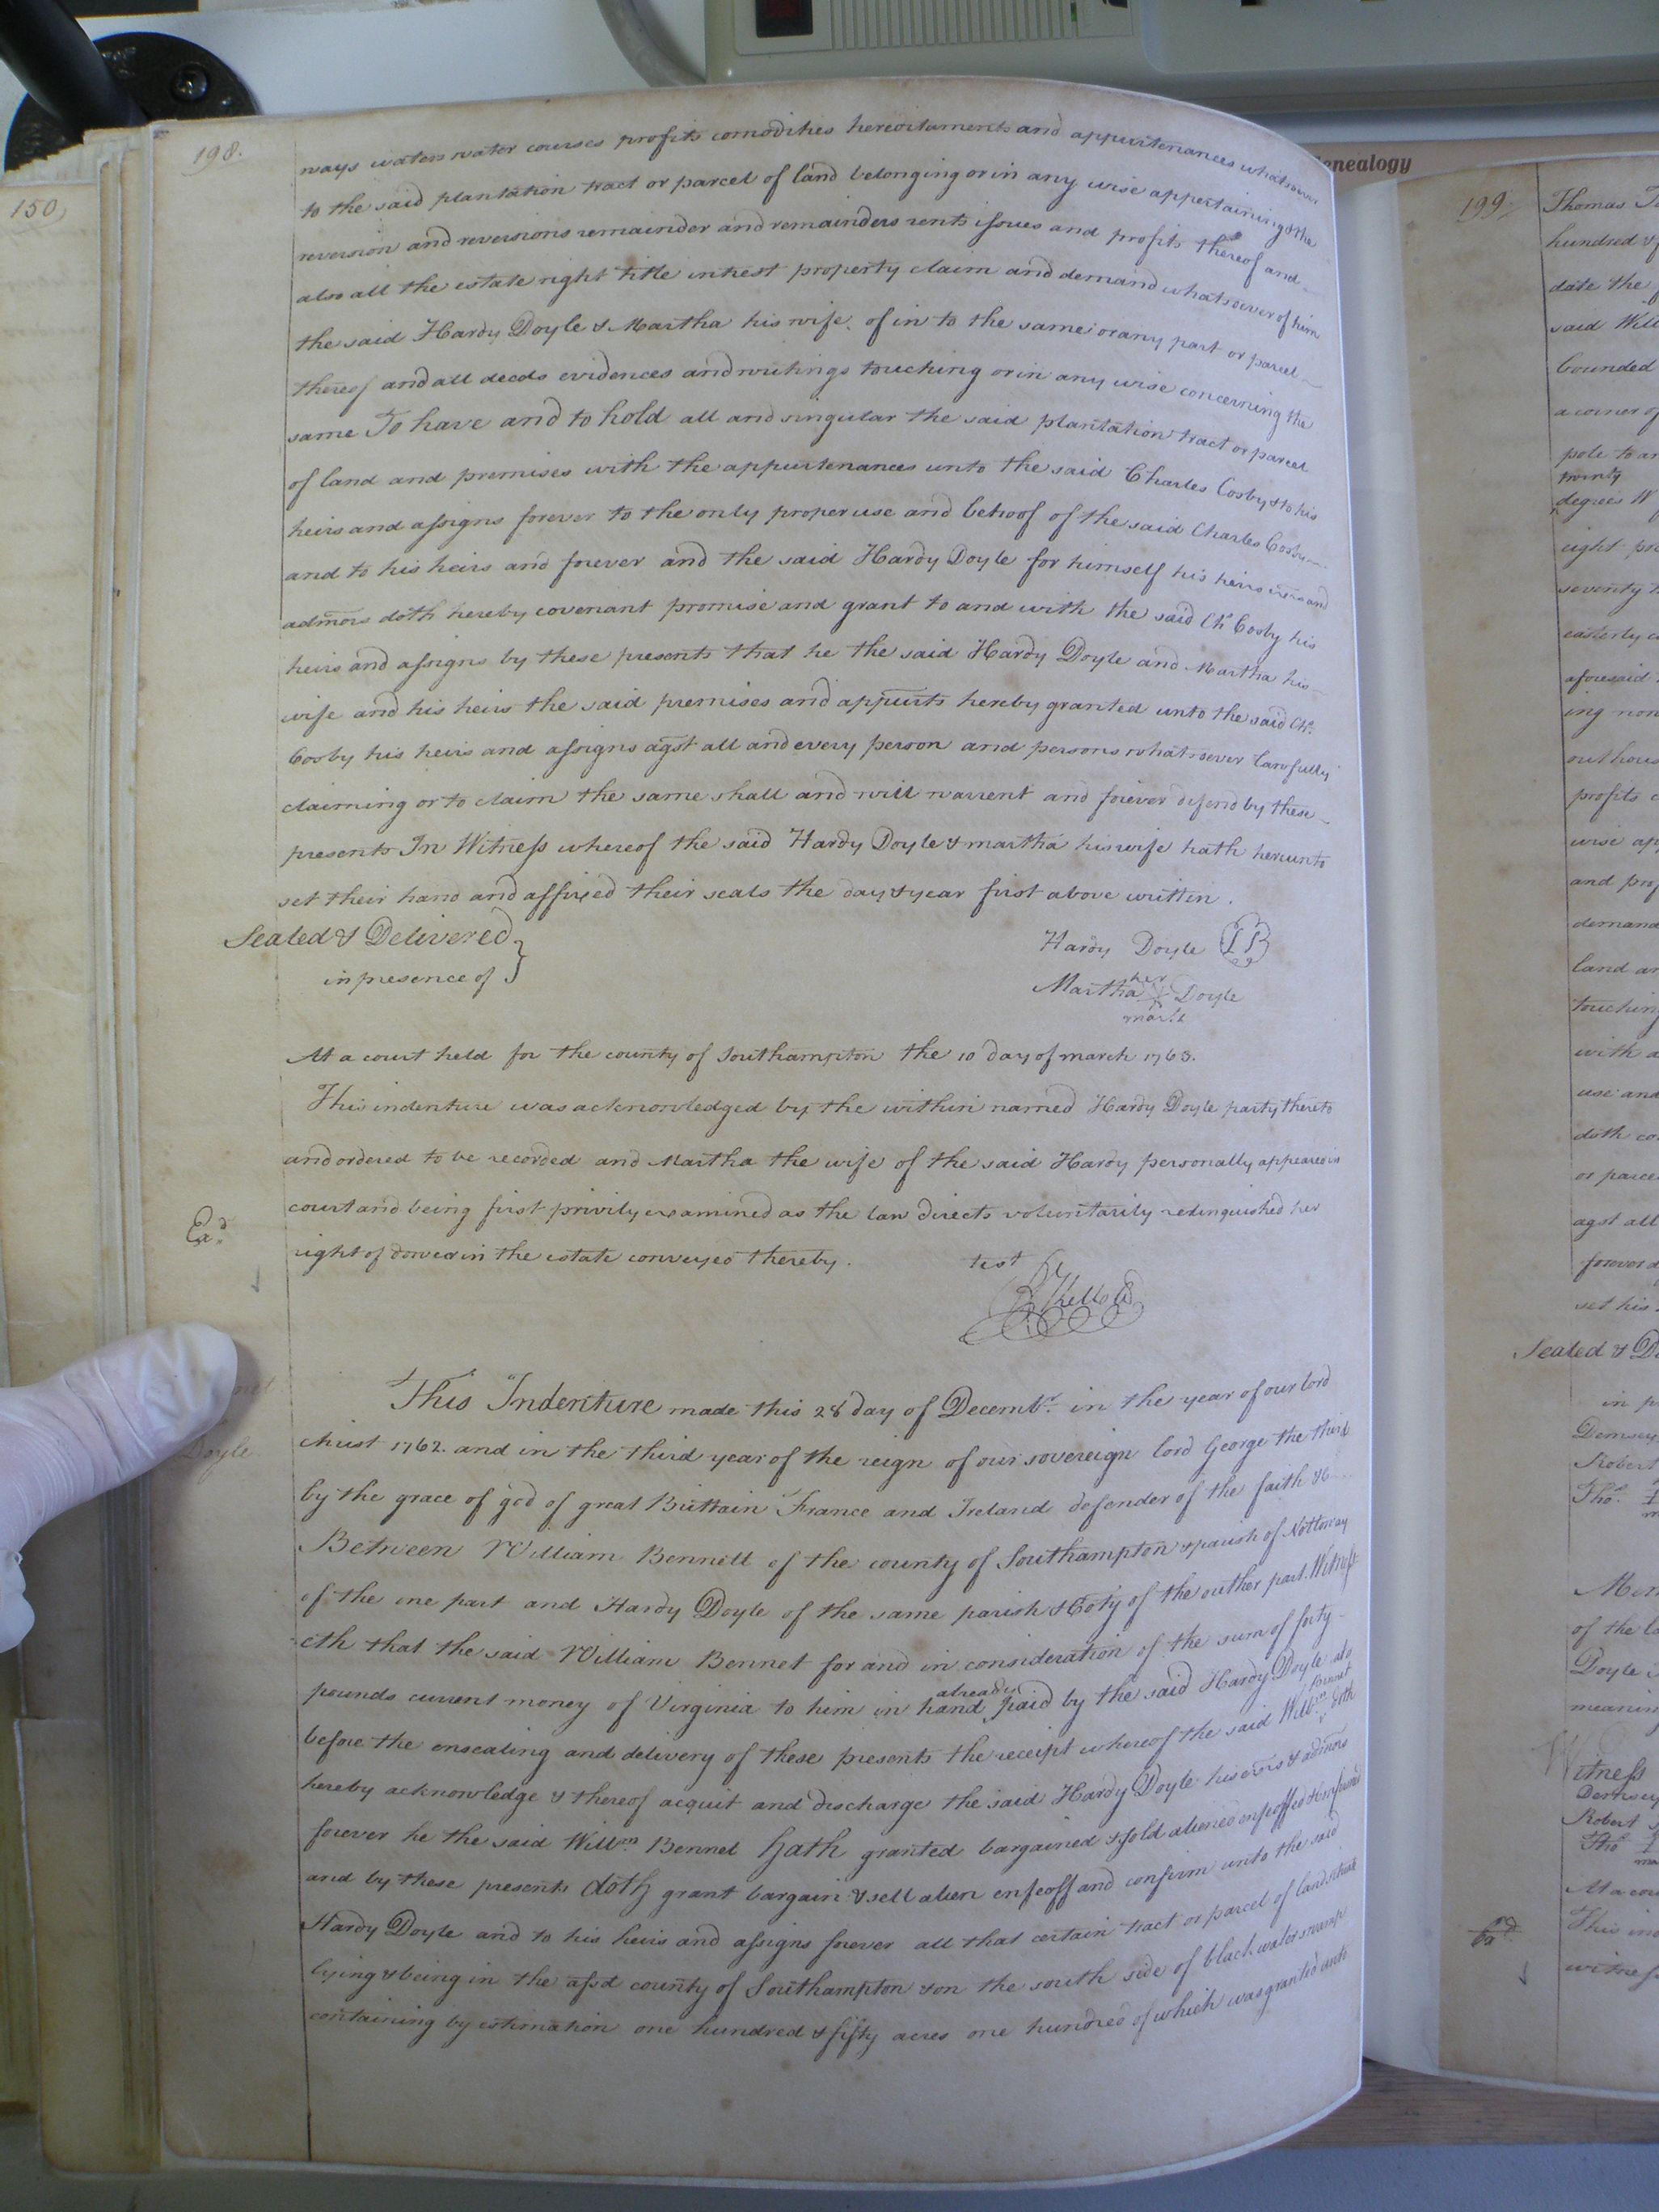 198.
ways waters water courses profits comodities hereditaments and appurtenances whatsoever
to the said plantation tract or parcel of land belonging or in any wise appertaining & the
reversion and reversions remainder and remainders rents issues and profits thereof and
also all the estate right title intrest property claim and demand whatsoever of him
the said Hardy Doyle & Martha his wife of in to the same or any part or parcel
thereof and all deeds evidences and writings touching or in any wise concerning the
same To have and to hold all and singular the said plantation tract or parcel
of land and premises with the appurtenances unto the said Charles Cosby & to his
heirs and assigns forever to the only proper use and behoof of the said Charles Cosby
and to his heirs and forever and the said Hardy Doyle for himself his heirs exrs and
admors doth hereby covenant promise and grant to and with the said Chs Cosby his
heirs and assigns by these presents that he the said Hardy Doyle and Martha his
wife and his heirs the said premises and appurts hereby granted unto the said Chs.
Cosby his heirs and assigns agst all and every person and persons whatsoever lawfully
claiming or to claim the same shall and will warrent and forever defend by these
presents In Witness whereof the said Hardy Doyle & martha his wife hath hereunto
set their hand and affixed their seals the day & year first above written.
Sealed & Delivered
in presence of
Hardy Doyle
her
Martha X Doyle
mark
At a court held for the county of Southampton the 10 day of march 1763.
This indenture was acknowledged by the within named Hardy Doyle party thereto
and ordered to be recorded and Martha the wife of the said Hardy personally appeared in
court and being first privily examined as the law directs voluntarily relinquished her
Exd.
right of dower in the estate conveyed thereby.
test
This Indenture made this 28 day of Decembr. in the year of our lord
christ 1762. and in the third year of the reign of our sovereign lord George the third
Doyle
by the grace of god of great Brittain France and Ireland defender of the faith &c
Between William Bennett of the county of Southampton & parish of Nottoway
of the one part and Hardy Doyle of the same parish & Coty of the outher part. Witness
eth that the said William Bennet for and in consideration of the sum of forty
pounds current money of Virginia to him in hand already paid by the said Hardy Doyle ato
before the ensealing and delivery of these presents the receipt whereof the said Willm. Bennet doth
hereby acknowledge & thereof acquit and discharge the said Hardy Doyle his exrs & admors
forever he the said Willm. Bennet hath granted bargained & sold aliened enfeoffed & confirmed
and by these presents doth grant bargain & sell alien enfeoff and confirm unto the said
Hardy Doyle and to his heirs and assigns forever all that certain tract or parcel of land situate
lying & being in the afsd county of Southampton & on the south side of black water swamp
containing by estimation one hundred & fifty acres one hundred of which was granted unto
150
enealogy
199.
Thomas
hundred &
date the
said Will
bounded
a corner of
pole to an
twenty
degrees W
eight po
seventy
easterly
aforesaid
ing non
out hous
profits
wise ap
and prof
demand
land an
touching
with a
use and
doth co
or parce
agst all
forever d
set his
Sealed & D
in p
Robert
Tho.
of the la
Doyle
meaning
Witness
Robert
Tho
At a cou
This ind
witness